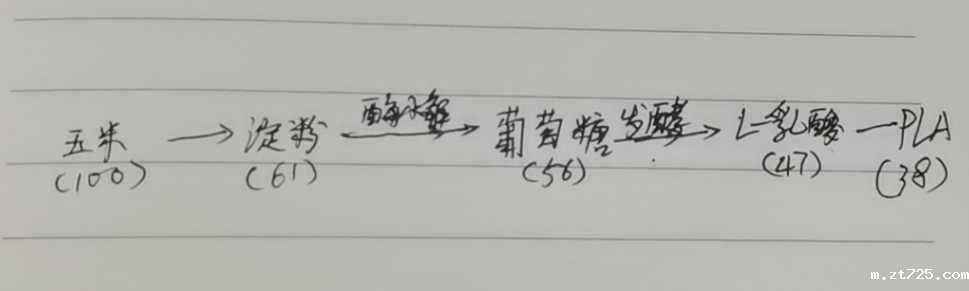 酶水解 发酵
五米 → 淀粉 → 葡萄糖 → L-乳酸 — PLA
(100) (61) (56) (47) (38)
m.zt725.com